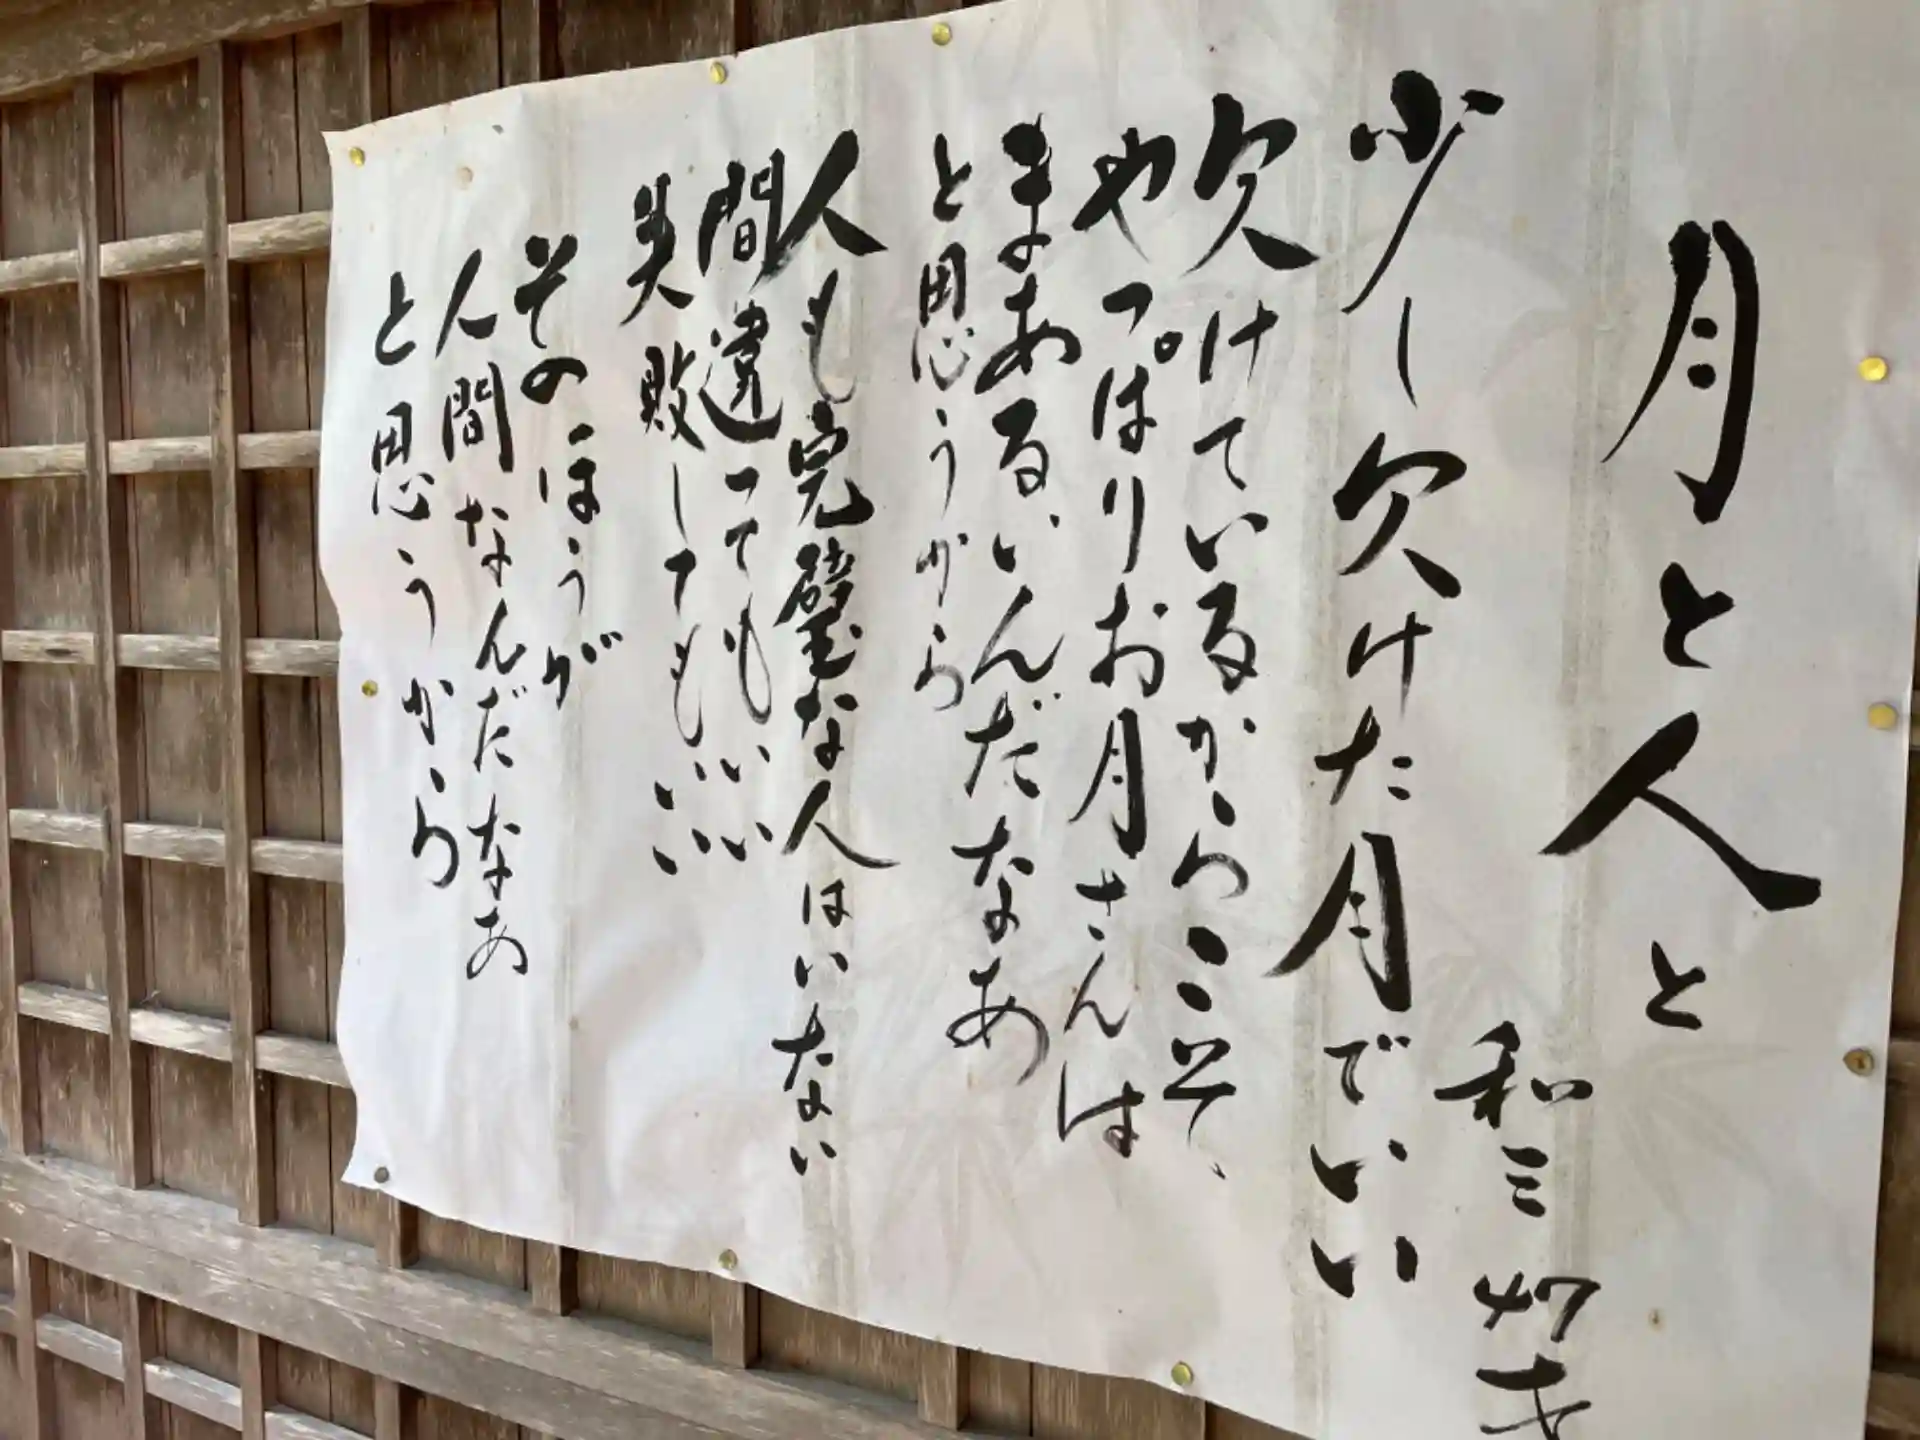 月と人と
和三
少し欠けた月でいい
欠けているからこそ、
やっぱりお月さんは
まあるいんだなあ
と思うから
人も完璧な人はいない
間違ってもいい
失敗してもいい
そのほうが
人間なんだなあ
と思うから